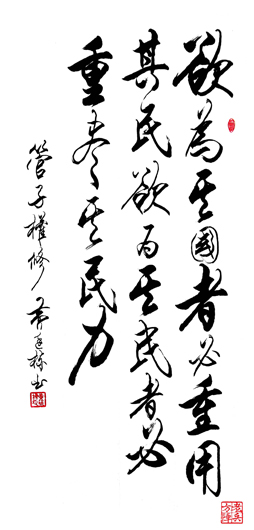 欲為其國者必重用
其民欲为其民者必
重尽其民力
管子權修 書